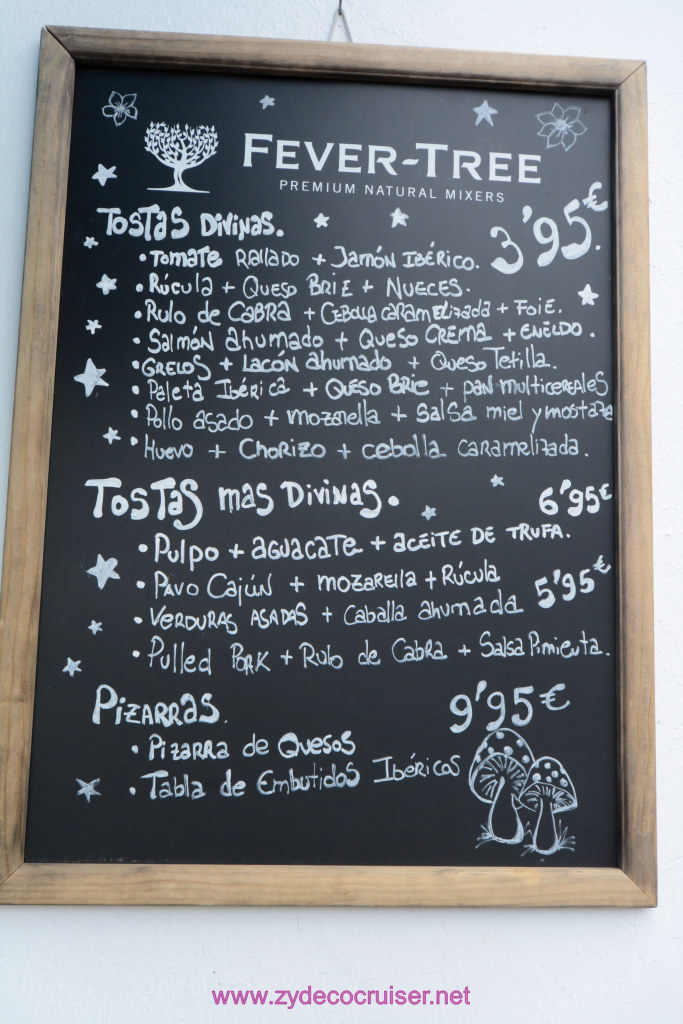 FEVER-TREE
PREMIUM NATURAL MIXERS
TOSTAS DIVINAS. 3'95€.
• TOMATE RALLADO + JAMÓN IBÉRICO.
• RÚCULA + QUESO BRIE + NUECES.
• RULO DE CABRA + CEBOLLA CARAMELIZADA + FOIE.
• SALMÓN AHUMADO + QUESO CREMA + ENELDO.
• GRELOS + LACÓN AHUMADO + QUESO TETILLA.
• PALETA IBÉRICA + QUESO BRIE + PAN MULTICEREALES
• POLLO ASADO + MOZARELLA + SALSA MIEL Y MOSTAZA
• HUEVO + CHORIZO + CEBOLLA CARAMELIZADA.
TOSTAS MAS DIVINAS. 6'95€
• PULPO + AGUACATE + ACEITE DE TRUFA.
• PAVO CAJÚN + MOZARELLA + RÚCULA 5'95€
• VERDURAS ASADAS + CABALLA AHUMADA
• PULLED PORK + RULO DE CABRA + SALSA PIMIENTA.
PIZARRAS. 9'95€
• PIZARRA DE QUESOS
• TABLA DE EMBUTIDOS IBÉRICOS
www.zydecocruiser.net